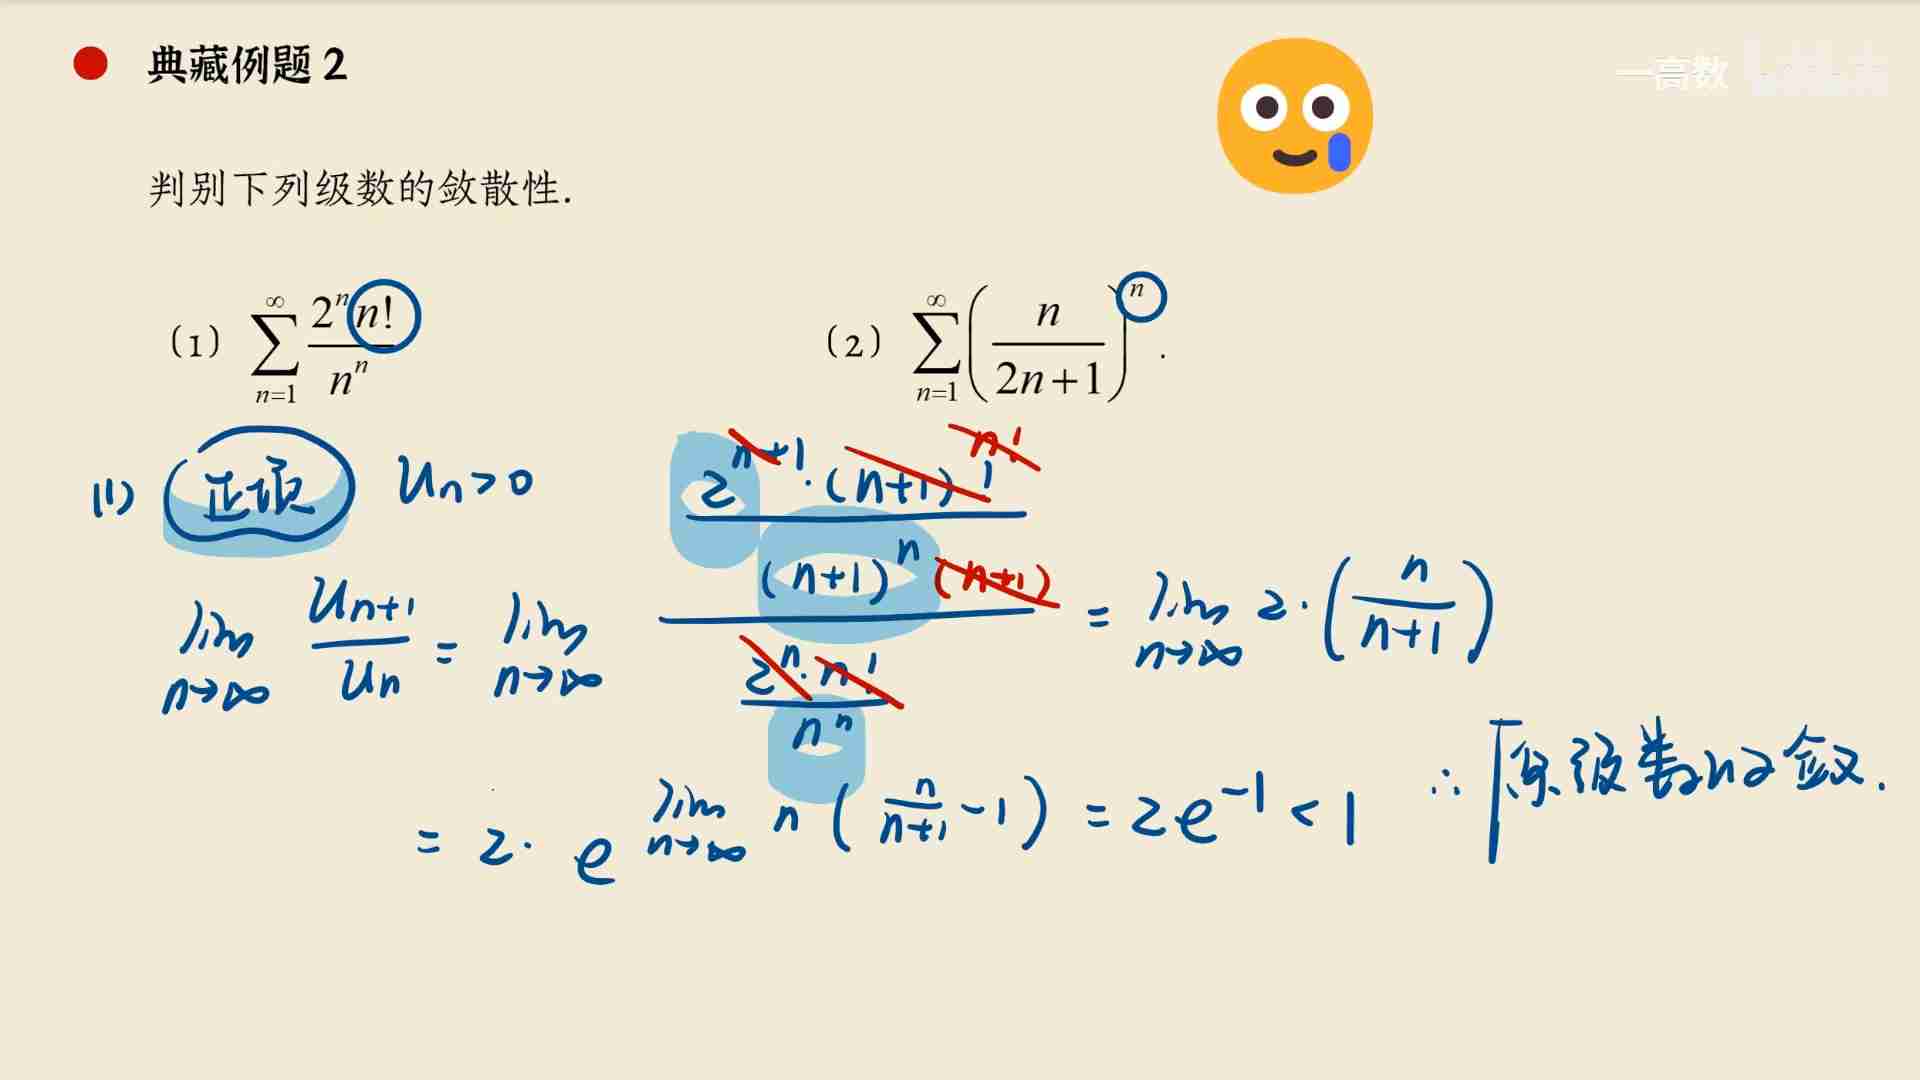 典藏例题 2
一高数
判别下列级数的敛散性.
(1) ∑_{n=1}^{∞} \frac{2^n n!}{n^n}
(2) ∑_{n=1}^{∞} (\frac{n}{2n+1})^n .
(1) 正项 u_n > 0
lim_{n→∞} \frac{u_{n+1}}{u_n} = lim_{n→∞} \frac{\frac{2^{n+1}·(n+1) n! !}{(n+1)^n (n+1)}}{\frac{2^n·n!}{n^n}} = lim_{n→∞} 2·(\frac{n}{n+1})
= 2·e^{lim_{n→∞} n(\frac{n}{n+1}-1)} = 2e^{-1} < 1 ∴ 原级数收敛.